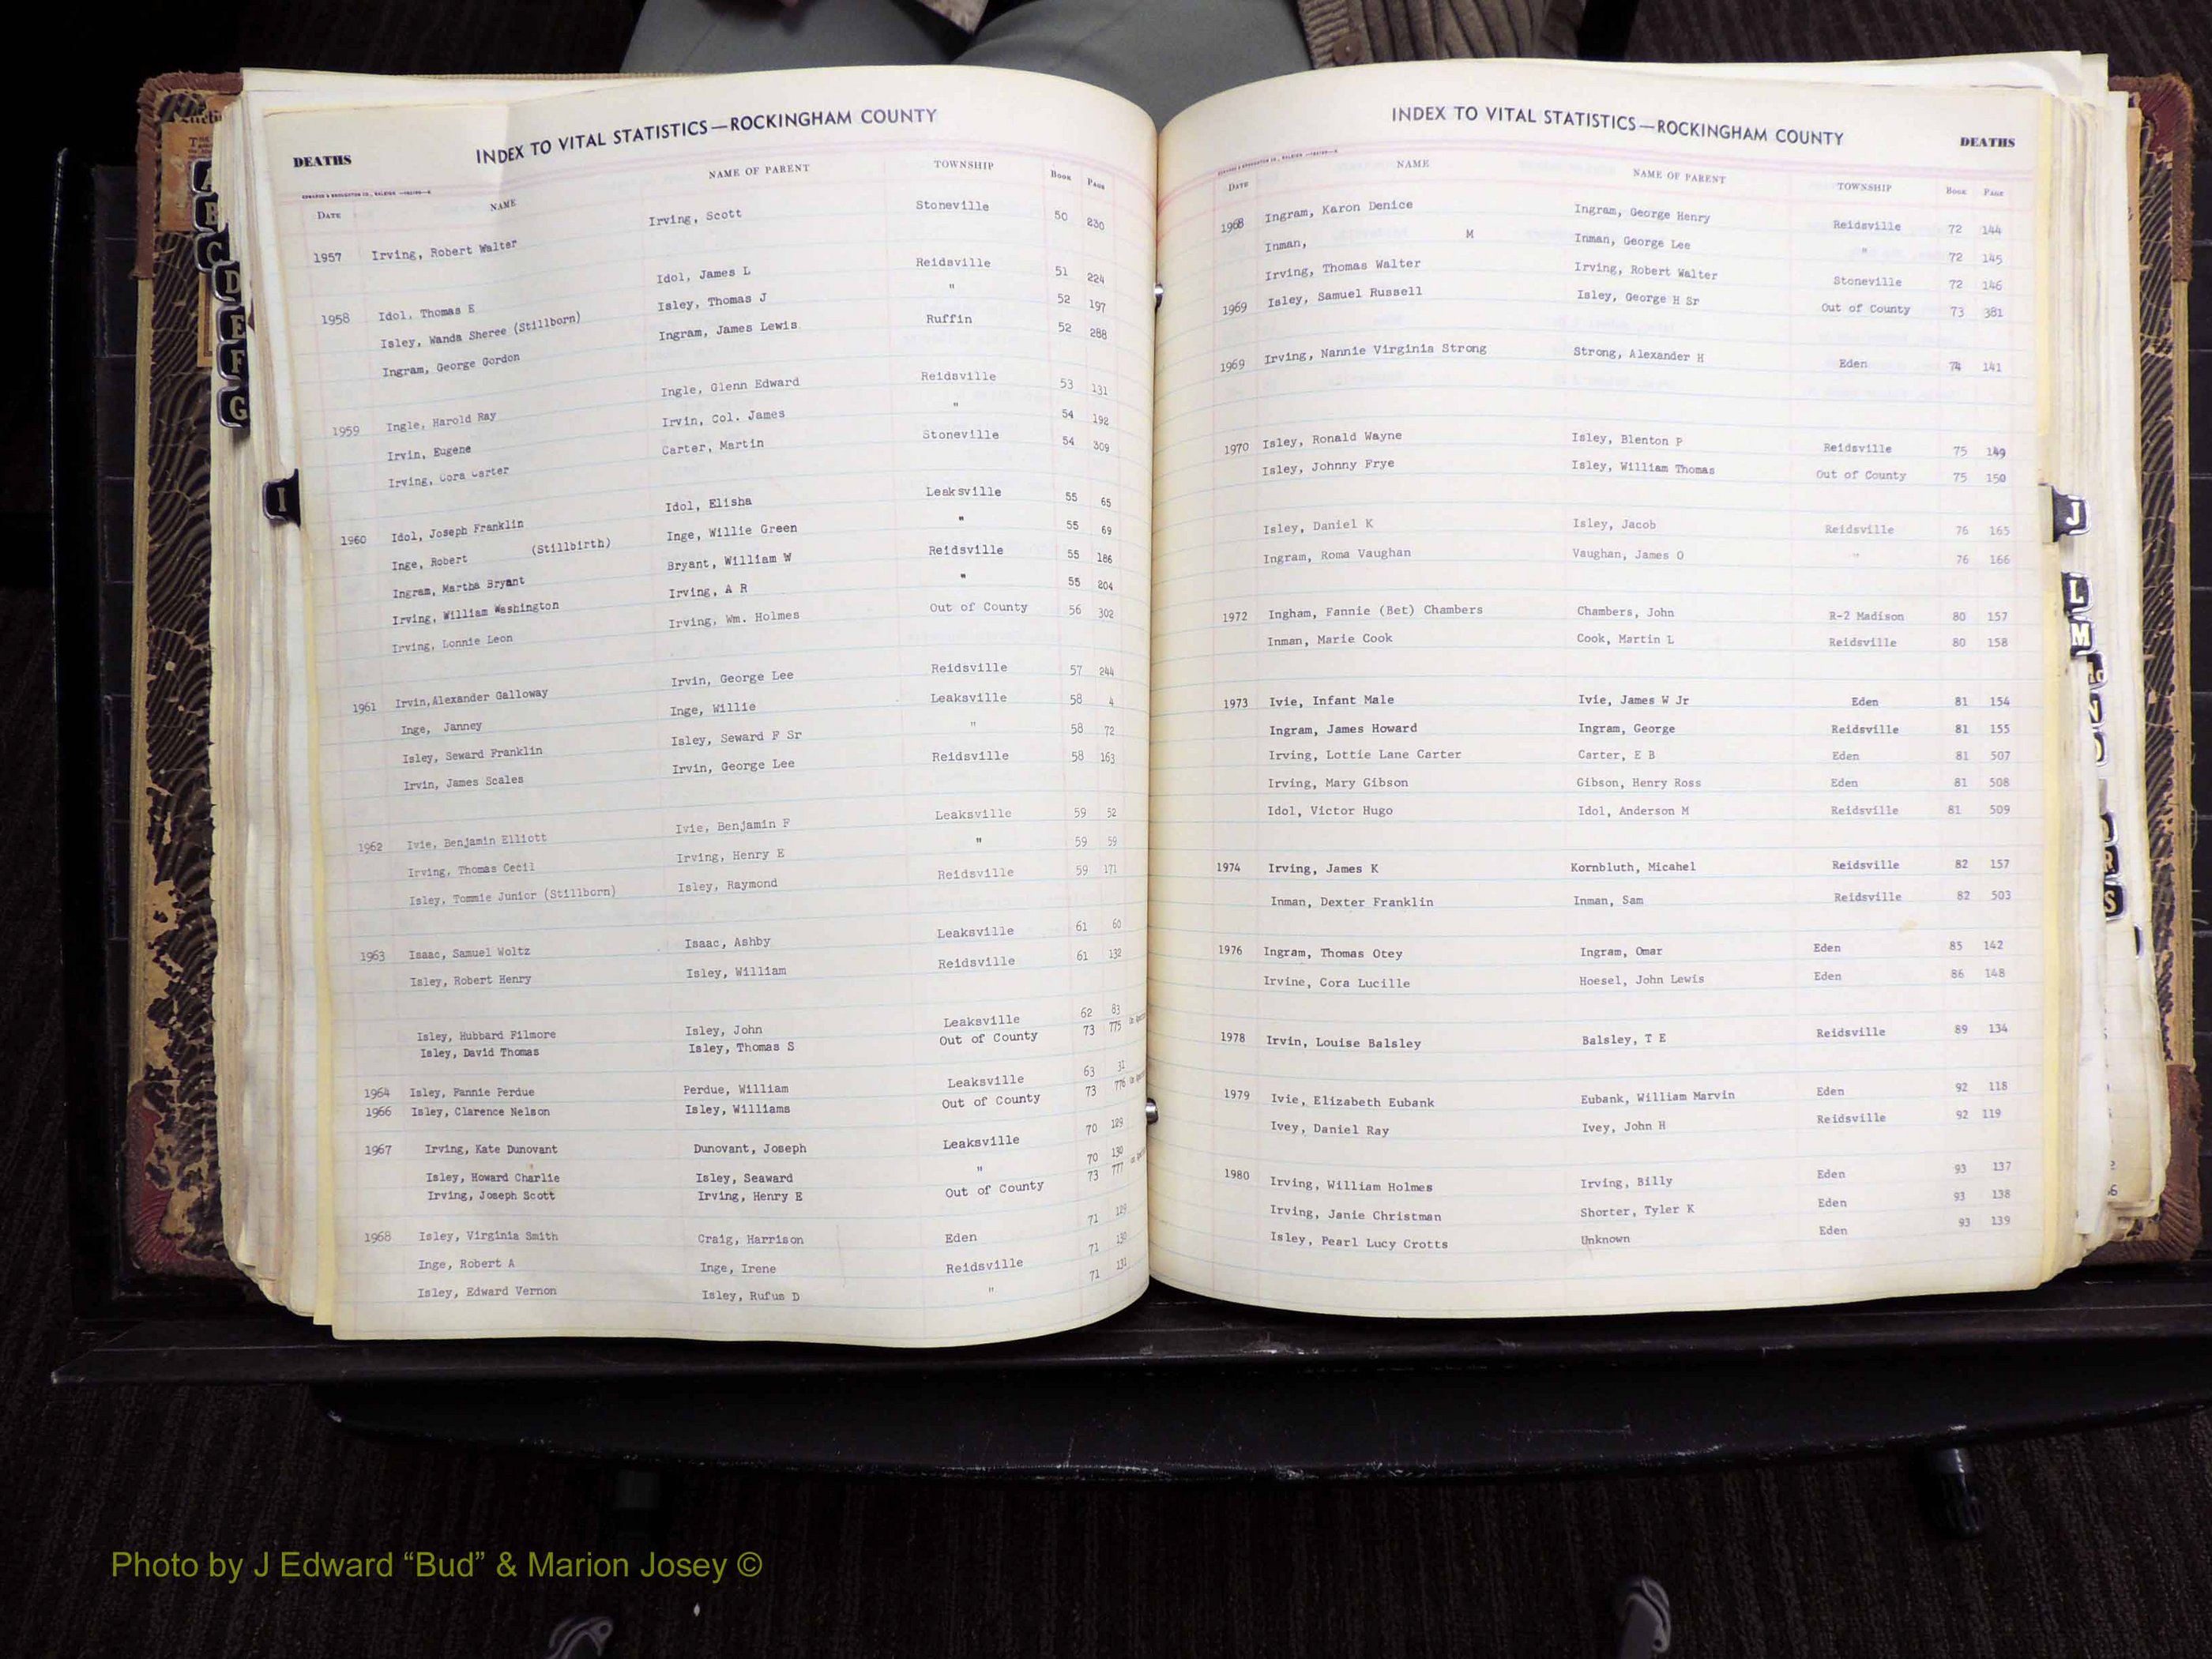 INDEX TO VITAL STATISTICS—ROCKINGHAM COUNTY
DEATHS
DATE NAME NAME OF PARENT TOWNSHIP BOOK PAGE
1957 Irving, Robert Walter Irving, Scott Stoneville 50 230
1958 Idol, Thomas E Idol, James L Reidsville 51 224
Isley, Wanda Sheree (Stillborn) Isley, Thomas J " 52 197
Ingram, George Gordon Ingram, James Lewis Ruffin 52 288
1959 Ingle, Harold Ray Ingle, Glenn Edward Reidsville 53 131
Irvin, Eugene Irvin, Col. James " 54 192
Irving, Cora Carter Carter, Martin Stoneville 54 309
1960 Idol, Joseph Franklin Idol, Elisha Leaksville 55 65
Inge, Robert (Stillbirth) Inge, Willie Green " 55 69
Ingram, Martha Bryant Bryant, William W Reidsville 55 186
Irving, William Washington Irving, A R " 55 204
Irving, Lonnie Leon Irving, Wm. Holmes Out of County 56 302
1961 Irvin,Alexander Galloway Irvin, George Lee Reidsville 57 244
Inge, Janney Inge, Willie Leaksville 58 4
Isley, Seward Franklin Isley, Seward F Sr " 58 72
Irvin, James Scales Irvin, George Lee Reidsville 58 163
1962 Ivie, Benjamin Elliott Ivie, Benjamin F Leaksville 59 52
Irving, Thomas Cecil Irving, Henry E " 59 59
Isley, Tommie Junior (Stillborn) Isley, Raymond Reidsville 59 171
1963 Isaac, Samuel Woltz Isaac, Ashby Leaksville 61 60
Isley, Robert Henry Isley, William Reidsville 61 132
Isley, Hubbard Filmore Isley, John Leaksville 62 83
Isley, David Thomas Isley, Thomas S Out of County 73 775
1964 Isley, Fannie Perdue Perdue, William Leaksville 63 31
1966 Isley, Clarence Nelson Isley, Williams Out of County 73 776
1967 Irving, Kate Dunovant Dunovant, Joseph Leaksville 70 129
Isley, Howard Charlie Isley, Seaward " 70 130
Irving, Joseph Scott Irving, Henry E Out of County 73 777
1968 Isley, Virginia Smith Craig, Harrison Eden 71 129
Inge, Robert A Inge, Irene Reidsville 71 130
Isley, Edward Vernon Isley, Rufus D " 71 131
INDEX TO VITAL STATISTICS—ROCKINGHAM COUNTY
DEATHS
DATE NAME NAME OF PARENT TOWNSHIP BOOK PAGE
1968 Ingram, Karon Denice Ingram, George Henry Reidsville 72 144
Inman, M Inman, George Lee " 72 145
Irving, Thomas Walter Irving, Robert Walter Stoneville 72 146
1969 Isley, Samuel Russell Isley, George H Sr Out of County 73 381
1969 Irving, Nannie Virginia Strong Strong, Alexander H Eden 74 141
1970 Isley, Ronald Wayne Isley, Blenton P Reidsville 75 149
Isley, Johnny Frye Isley, William Thomas Out of County 75 150
Isley, Daniel K Isley, Jacob Reidsville 76 165
Ingram, Roma Vaughan Vaughan, James O " 76 166
1972 Ingham, Fannie (Bet) Chambers Chambers, John R-2 Madison 80 157
Inman, Marie Cook Cook, Martin L Reidsville 80 158
1973 Ivie, Infant Male Ivie, James W Jr Eden 81 154
Ingram, James Howard Ingram, George Reidsville 81 155
Irving, Lottie Lane Carter Carter, E B Eden 81 507
Irving, Mary Gibson Gibson, Henry Ross Eden 81 508
Idol, Victor Hugo Idol, Anderson M Reidsville 81 509
1974 Irving, James K Kornbluth, Micahel Reidsville 82 157
Inman, Dexter Franklin Inman, Sam Reidsville 82 503
1976 Ingram, Thomas Otey Ingram, Omar Eden 85 142
Irvine, Cora Lucille Hoesel, John Lewis Eden 86 148
1978 Irvin, Louise Balsley Balsley, T E Reidsville 89 134
1979 Ivie, Elizabeth Eubank Eubank, William Marvin Eden 92 118
Ivey, Daniel Ray Ivey, John H Reidsville 92 119
1980 Irving, William Holmes Irving, Billy Eden 93 137
Irving, Janie Christman Shorter, Tyler K Eden 93 138
Isley, Pearl Lucy Crotts Unknown Eden 93 139
A
B
C
D
E
F
G
I
J
L
M
N
R
S
Photo by J Edward “Bud” & Marion Josey ©